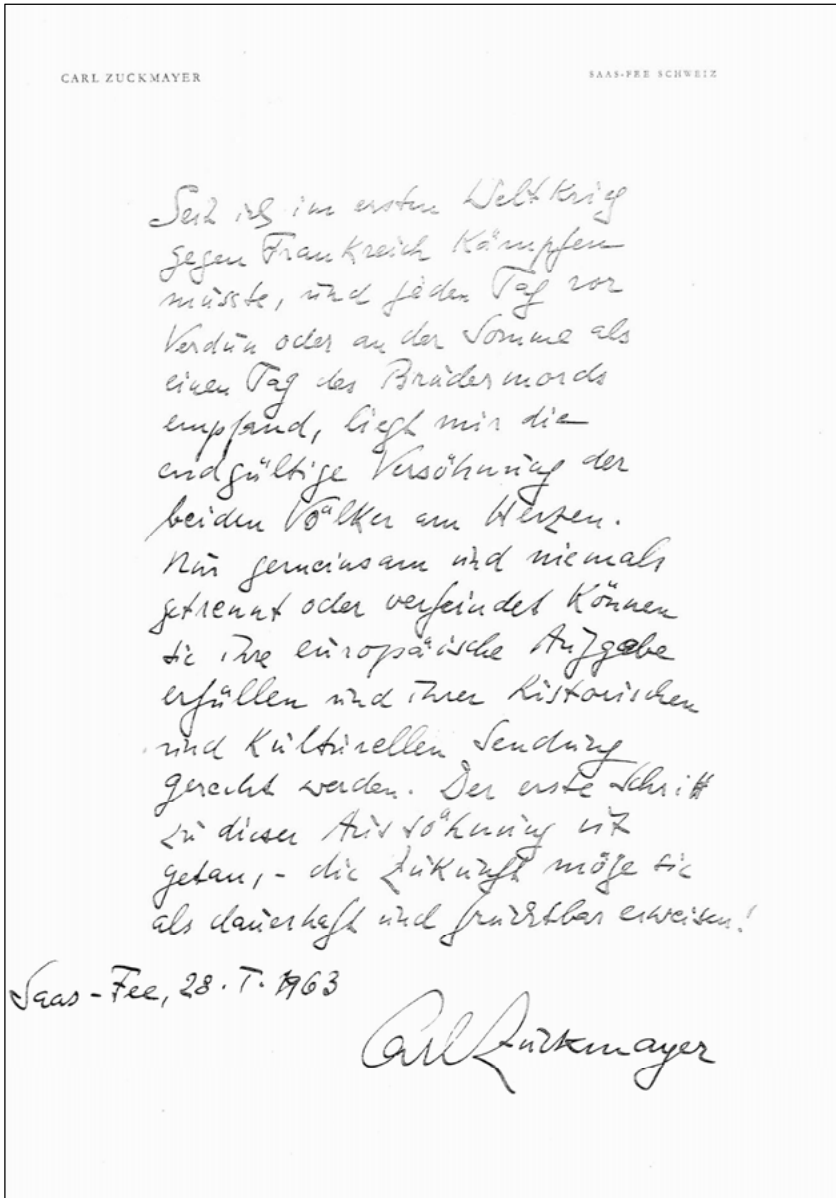 CARL ZUCKMAYER
SAAS-FEE SCHWEIZ
Seit ich im ersten Weltkrieg
gegen Frankreich kämpfen
musste, und jeden Tag vor
Verdun oder an der Somme als
einen Tag des Brudermords
empfand, liegt mir die
endgültige Versöhnung der
beiden Völker am Herzen.
Nur gemeinsam und niemals
getrennt oder verfeindet können
sie ihre europäische Aufgabe
erfüllen und ihrer historischen
und kulturellen Sendung
gerecht werden. Der erste Schritt
zu dieser Aussöhnung ist
getan, - die Zukunft möge sie
als dauerhaft und fruchtbar erweisen!
Saas-Fee, 28. I. 1963
Carl Zuckmayer